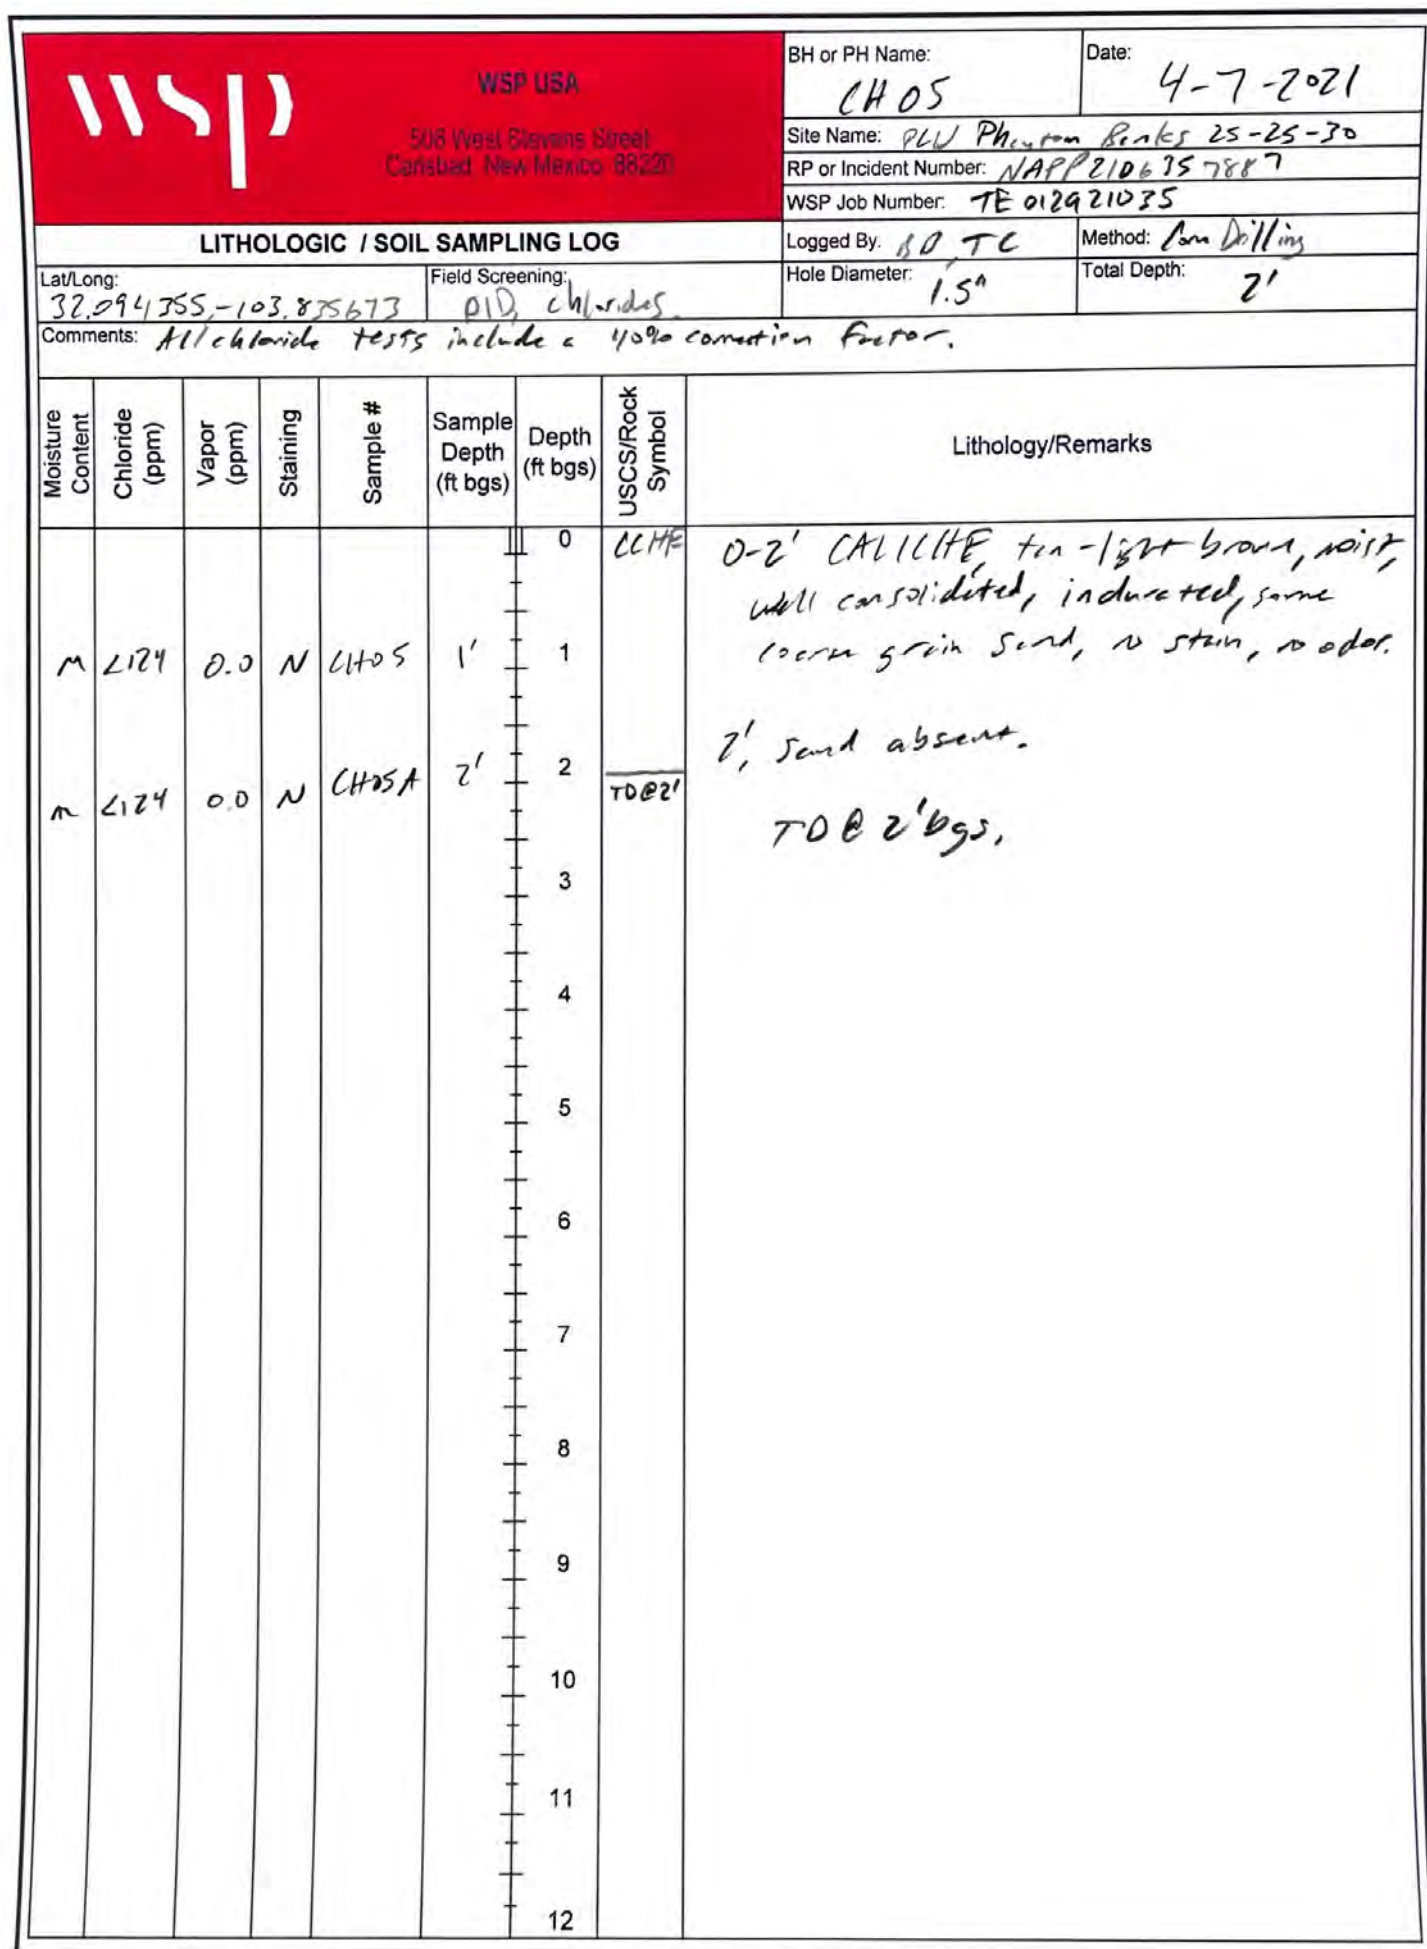 wsp
WSP USA
508 West Stevens Street
Carlsbad, New Mexico 88220
BH or PH Name:
CH05
Date:
4-7-2021
Site Name: PLU Phantom Banks 25-25-30
RP or Incident Number: NAPP2106357887
WSP Job Number: TE012921035
LITHOLOGIC / SOIL SAMPLING LOG
Logged By: BD, TC
Method: Drilling
Lat/Long:
32.094355,-103.835673
Field Screening:
PID, chlorides
Hole Diameter: 1.5"
Total Depth: 2'
Comments: All chloride tests include a 40% correction factor.
Moisture Content
Chloride (ppm)
Vapor (ppm)
Staining
Sample #
Sample Depth (ft bgs)
Depth (ft bgs)
USCS/Rock Symbol
Lithology/Remarks
0 CCHE 0-2' CALICHE, tan-light brown, moist,
well consolidated, indurated, some
coarse grain sand, no stain, no odor.
M <124 0.0 N CH05 1' 1
2', sand absent.
M <124 0.0 N CH05A 2' 2 TD@2'
TD@2'bgs.
3
4
5
6
7
8
9
10
11
12